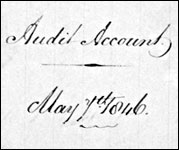 Audit Account.
May 7th. 1846.